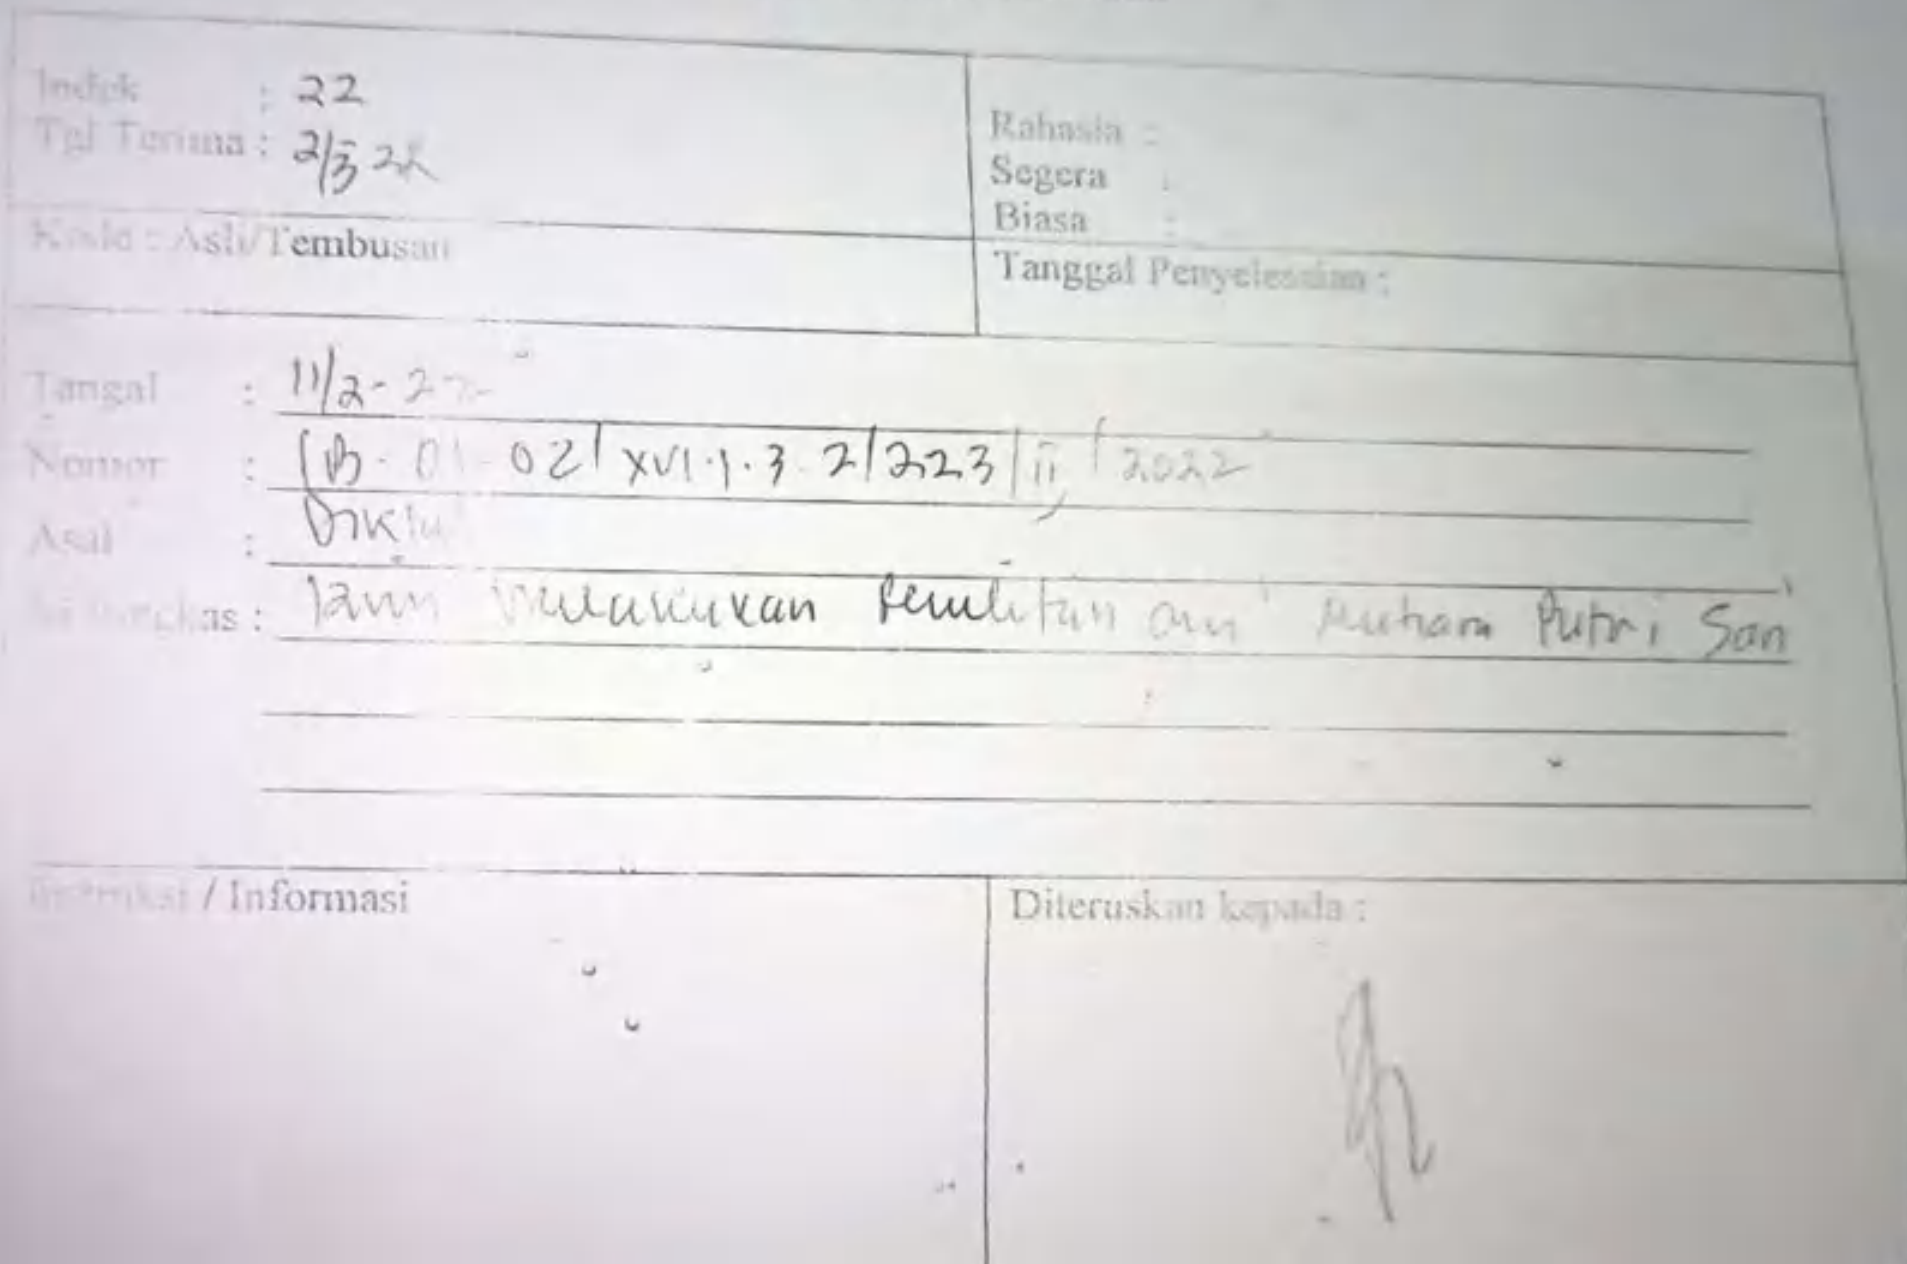 Indek : 22
Tgl Terima : 2/3 22
Rahasia :
Segera :
Biasa :
Kode : Asli/Tembusan
Tanggal Penyelesaian :
Tangal : 11/2-22
Nomor : 01-02/XVI.1.3.2/223/II/2022
Asal :
: melakukan Penelitian an Mutiara Putri Sari
Instruksi / Informasi
Diteruskan kepada :